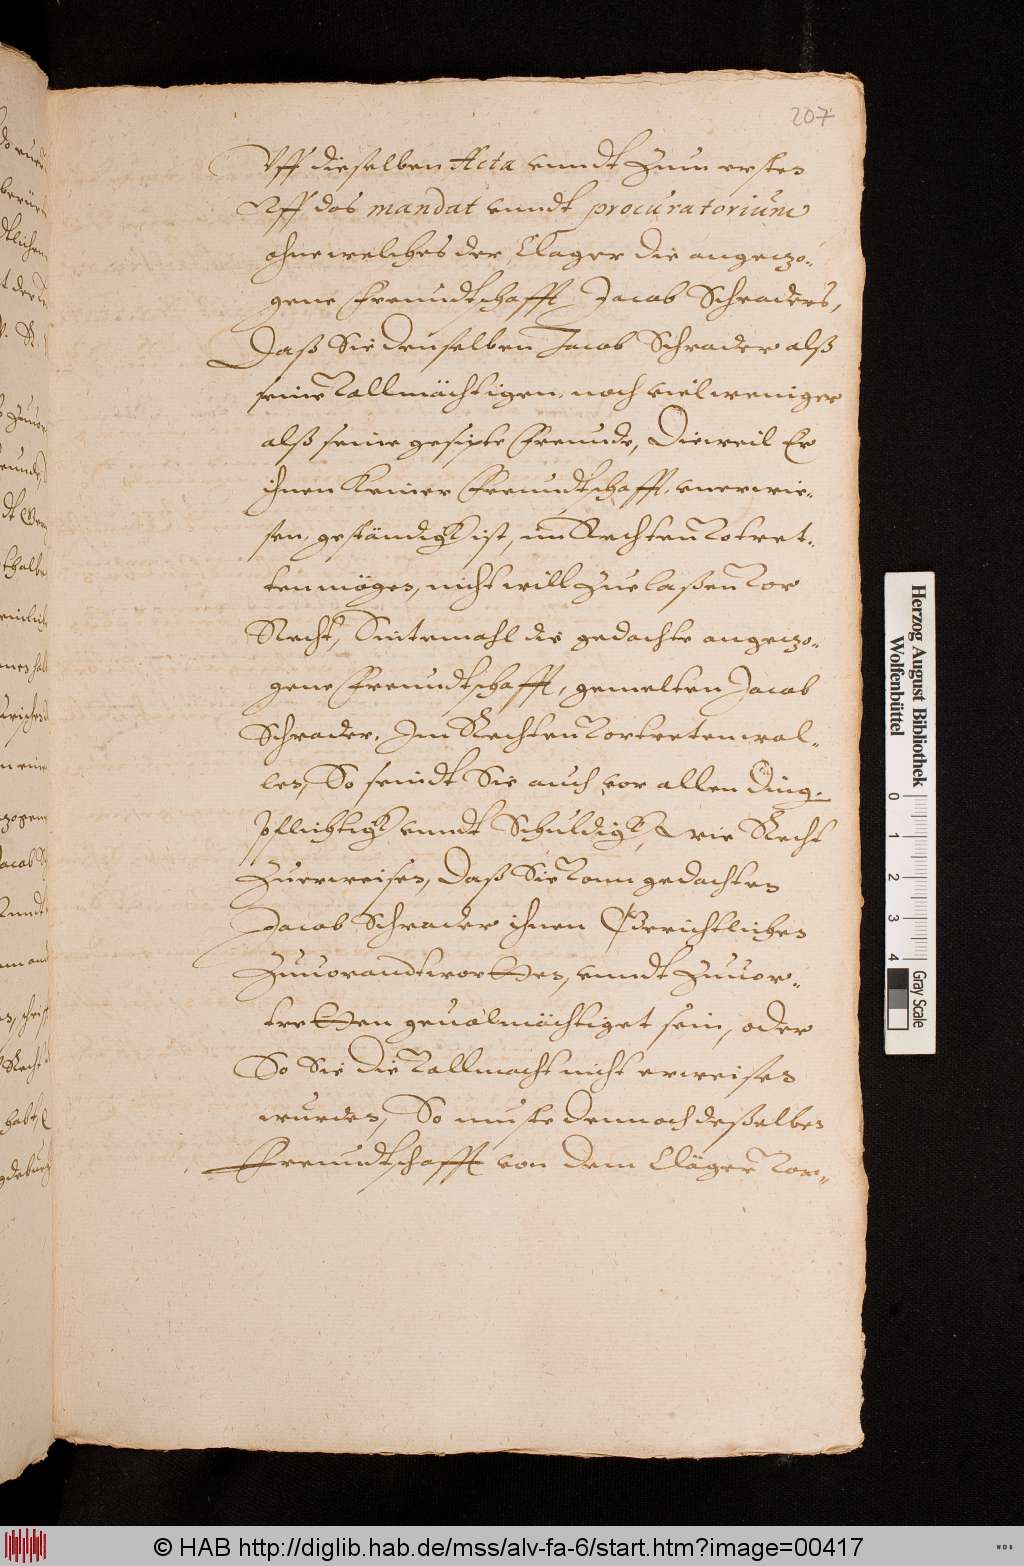 207
Vff dieselben Acta vnndt Zum ersten
Vff das mandat vnndt procuratorium
ohne welches der Clager die angezo-
gene Freundtschafft Jacob Schraders,
Daß Sie denselben Jacob Schrader alß
seine Vollmächtigen, noch viel weniger
alß seine gesipte Freunde, Dieweil Er
ihnen keiner Freundtschafft, vnerwie-
sen, geständigk ist, im Rechten
ten mögen, nicht will Zuelaßen Vor
Recht, Sintemahl die gedachte angezo-
gene Freundtschafft, gemelten Jacob
Schrader, Im Rechten Vortreten wol-
len, So seindt Sie auch vor allen Ding.
Pflichtigk vnndt Schuldigk, wie Recht
Zuerweisen, Daß Sie Vom gedachten
Jacob Schrader ihnen Gerichtlichen
Zuuorandtwortten, vnndt Zuuor-
tretten geuolmächtiget sein, oder
So Sie die Vollmacht nicht erweisen
wurden, So muste dennoch deßelben
Freundtschafft von dem Cläger Vor-
Herzog August Bibliothek
Wolfenbüttel
0 1 2 3 4
Gray Scale
© HAB http://diglib.hab.de/mss/alv-fa-6/start.htm?image=00417